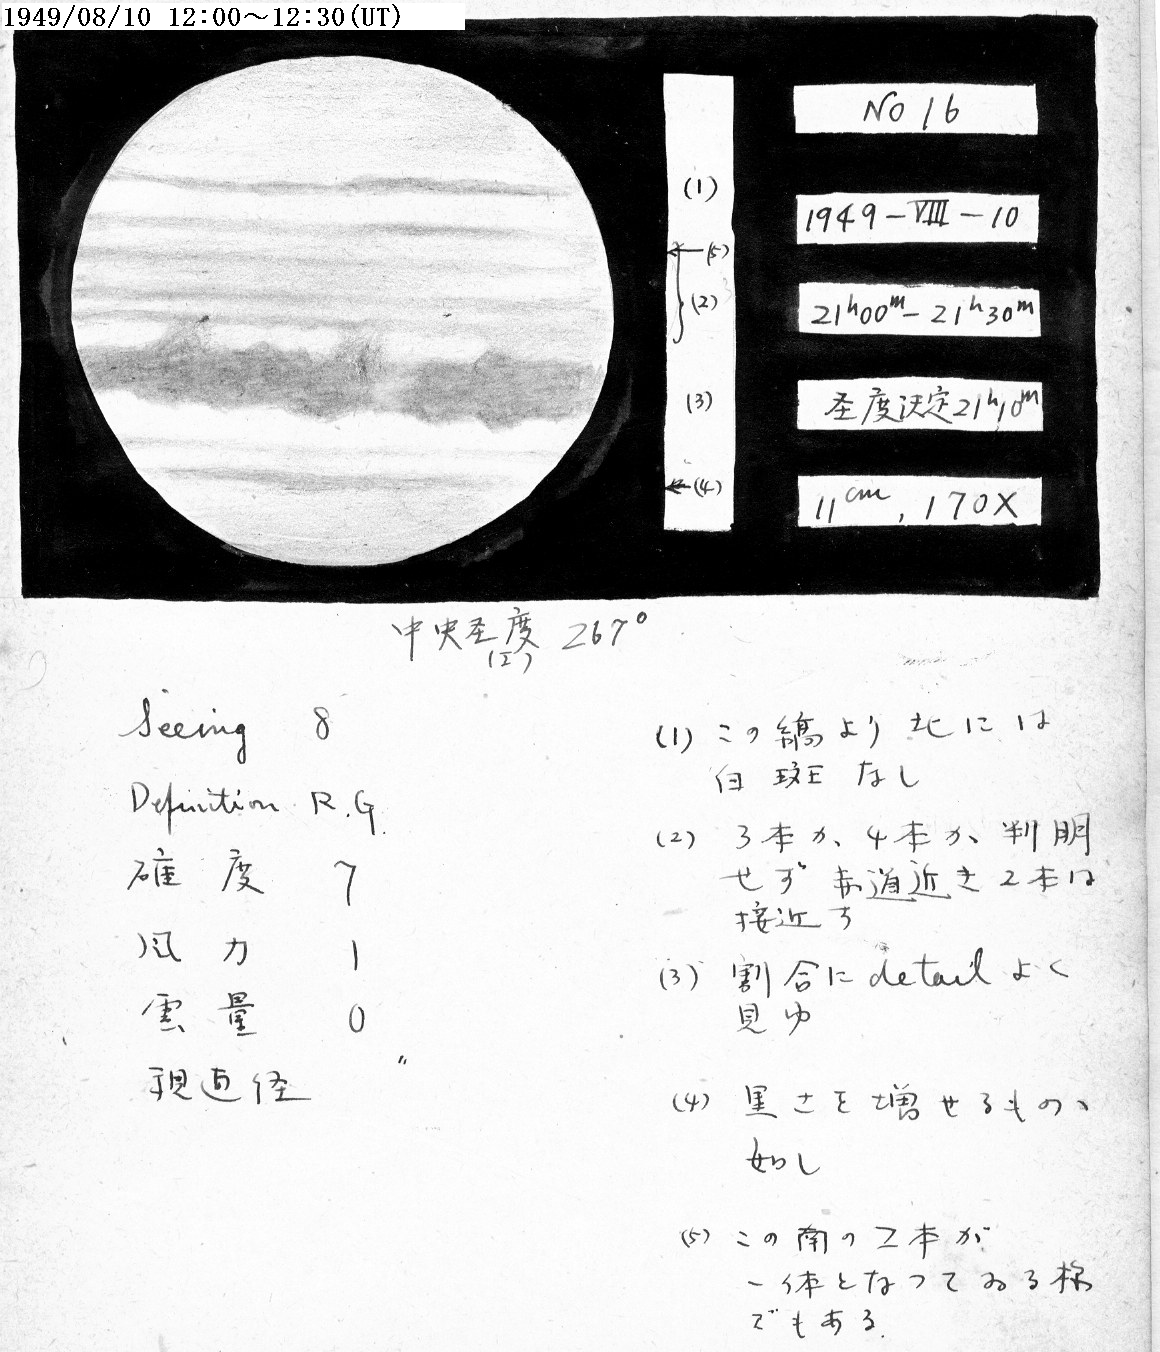 1949/08/10 12:00～12:30(UT)
No 16
1949-VIII-10
21h00m-21h30m
圣度决定21h10m
11cm, 170X
(1)
(5)
(2)
(3)
(4)
中央圣度 267°
(I)
Seeing 8
Definition R.G.
確度 7
風力 1
雲量 0
視直径 "
(1) この縞より北には
白斑なし
(2) 3本か、4本か、判明
せず 赤道近き2本は
接近す
(3) 割合にdetailよく
見ゆ
(4) 黒さを増せるもの、
如し
(5) この南の2本が
一体となってゐる様
でもある.